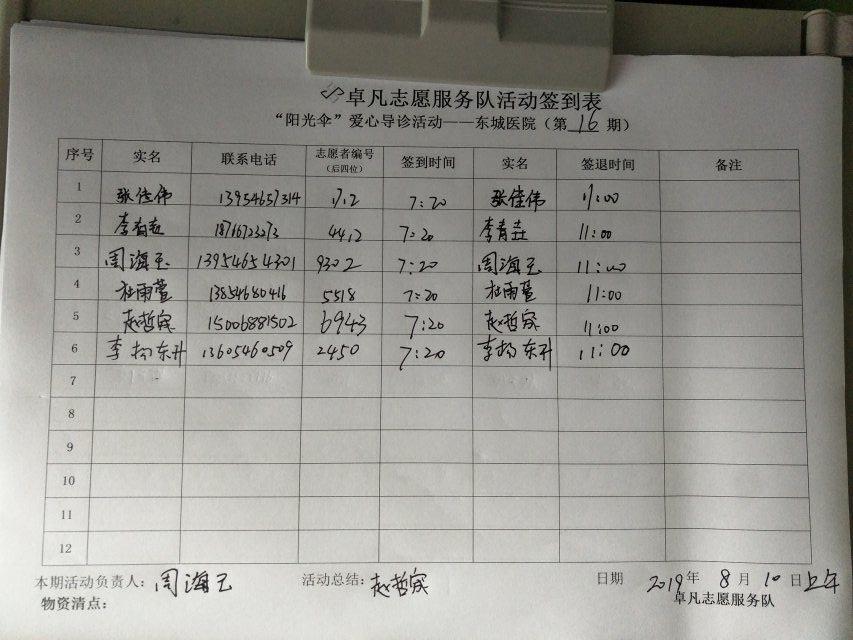 卓凡志愿服务队活动签到表
“阳光伞”爱心导诊活动——东城医院（第 16 期）
序号 实名 联系电话 志愿者编号（后四位） 签到时间 实名 签退时间 备注
1 张佳伟 13954657314 1712 7:20 张佳伟 11:00
2 李青垚 18766723273 4412 7:20 李青垚 11:00
3 周海玉 13954654301 9302 7:20 周海玉 11:00
4 杜雨萱 13854680416 5518 7:20 杜雨萱 11:00
5 赵哲宸 15006881502 6943 7:20 赵哲宸 11:00
6 李杨东升 13605460509 2450 7:20 李杨东升 11:00
7
8
9
10
11
12
本期活动负责人：周海玉 活动总结：赵哲宸 日期 2019年 8月 10日上午
物资清点： 卓凡志愿服务队